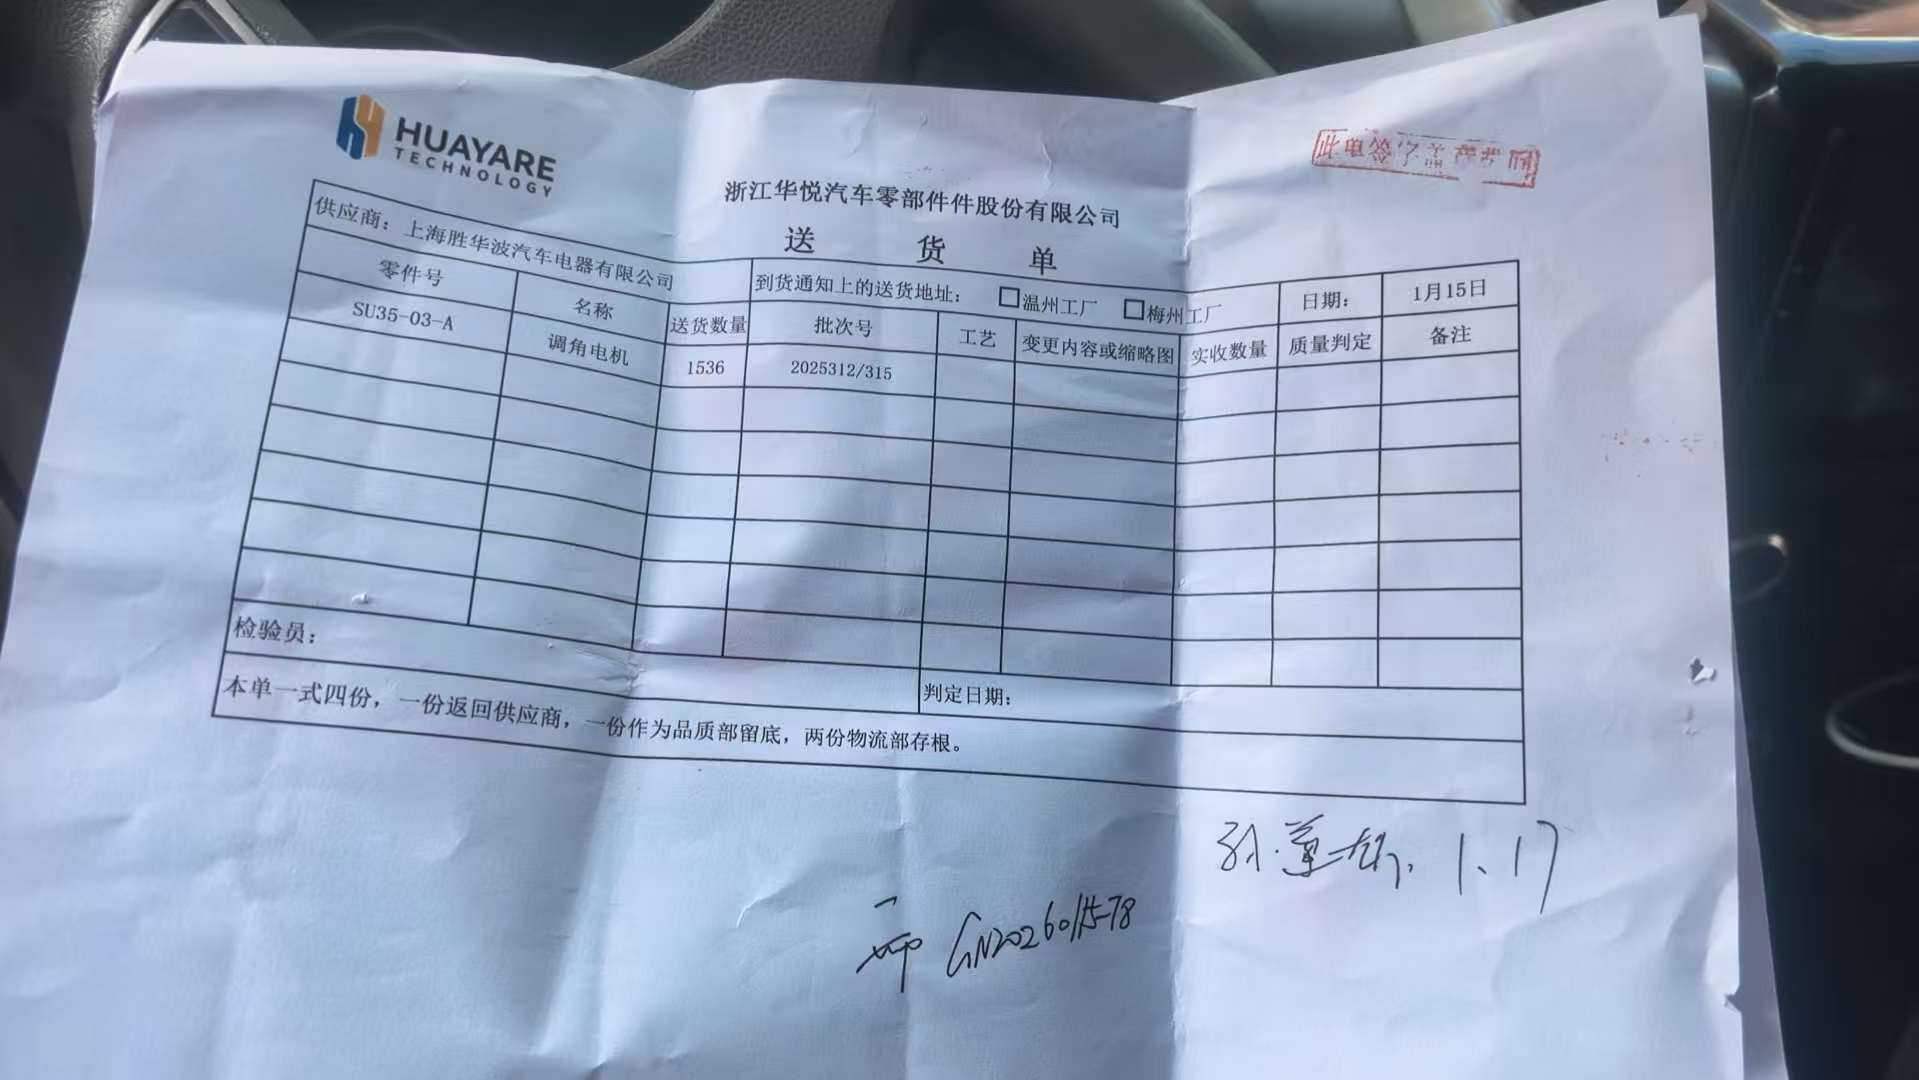 HUAYARE
TECHNOLOGY
浙江华悦汽车零部件件股份有限公司
送 货 单
供应商：上海胜华波汽车电器有限公司 到货通知上的送货地址： □温州工厂 □梅州工厂 日期： 1月15日
零件号 名称 送货数量 批次号 工艺 变更内容或缩略图 实收数量 质量判定 备注
SU35-03-A 调角电机 1536 2025312/315
检验员： 判定日期：
本单一式四份，一份返回供应商，一份作为品质部留底，两份物流部存根。
1.17
GN20260115-78